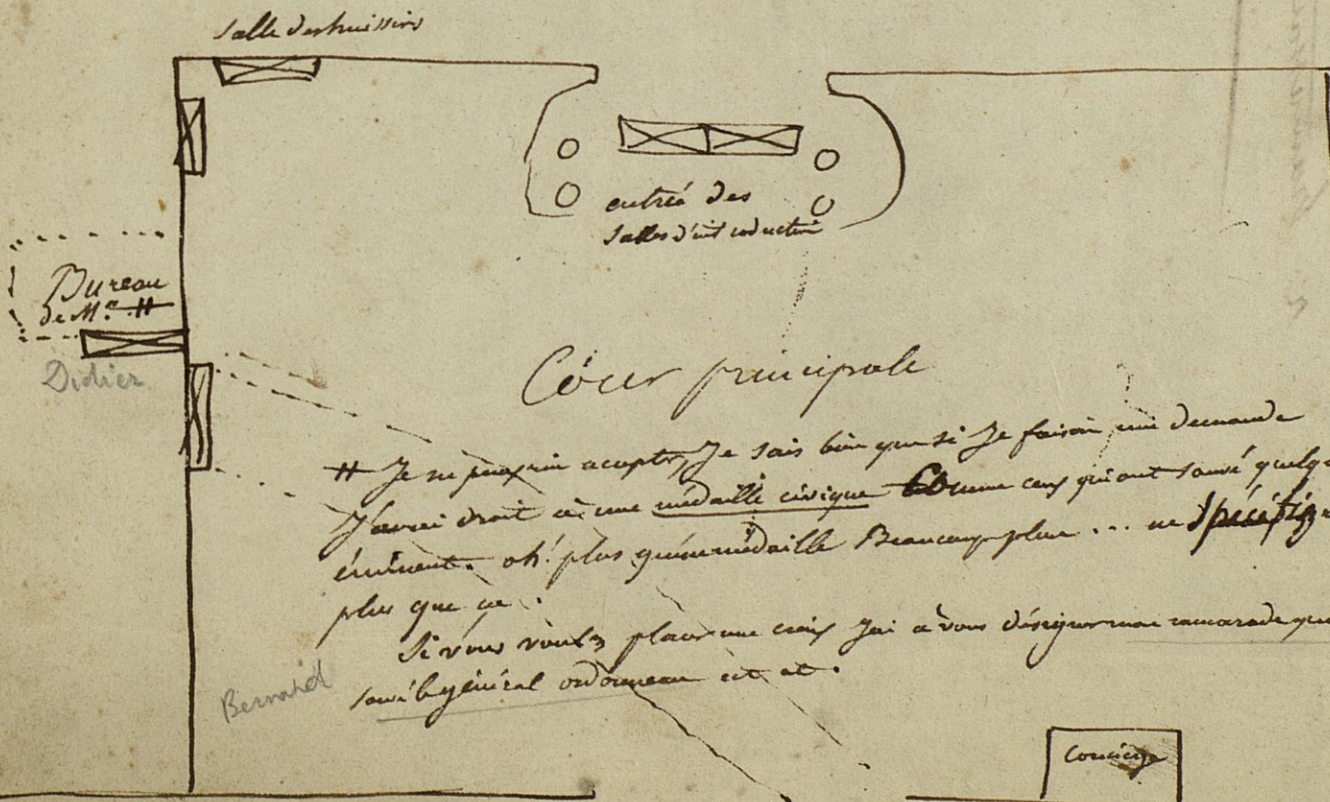 Salle des huissiers
entrée des
Salles d'introduction
Bureau
de Mr. H
Didier
Cour principale
H Je ne puis rien accepter, Je sais bien que si Je faisais une demande
J'aurai droit à une médaille civique Comme ceux qui ont sauvé quelqu
éminent. oh! plus qu'une médaille Beaucoup plus ... ne Spécifiez
plus que ça.
Si vous voulez placer une croix J'ai à vous désigner mon camarade qui
sauvé le général ordonneau
Bernard
Concierge